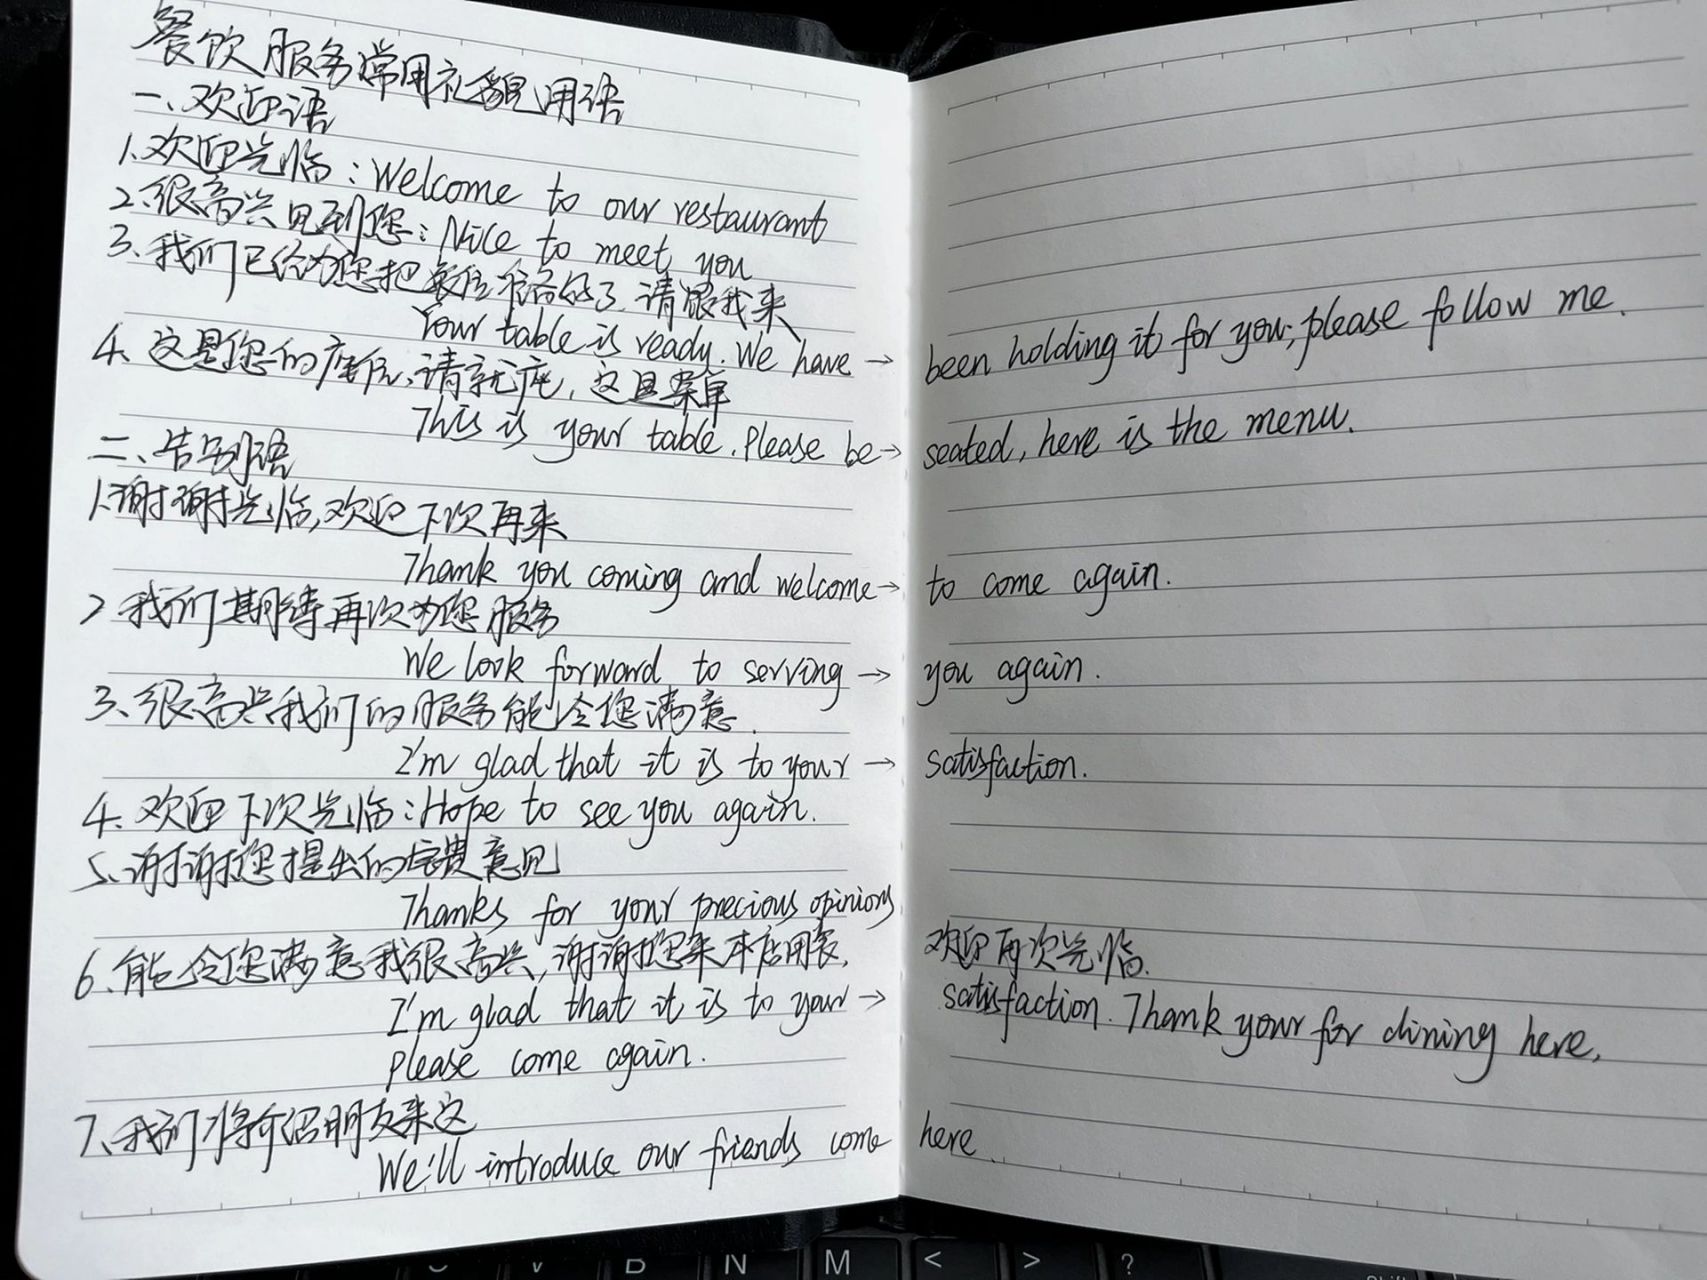 餐饮服务常用礼貌用语
一、欢迎语
1.欢迎光临:Welcome to our restaurant
2.很高兴见到您:Nice to meet you
3、我们已经为您把餐位准备好了.请跟我来
Your table is ready. We have → been holding it for you, please follow me.
4、这是您的座位,请就座,这是菜单
This is your table. Please be → seated, here is the menu.
二、告别语
1.谢谢光临,欢迎下次再来
Thank you coming and welcome → to come again.
2 我们期待再次为您服务
We look forward to serving → you again.
3、很高兴我们的服务能令您满意.
I'm glad that it is to your → satisfaction.
4、欢迎下次光临:Hope to see you again.
5、谢谢您提出的宝贵意见
Thanks for your precious opinions
6、能令您满意我很高兴,谢谢您来本店用餐, 欢迎再次光临.
I'm glad that it is to your → satisfaction. Thank your for dining here,
please come again.
7、我们将介绍朋友来这
We'll introduce our friends come here.
C V B N M < > ?